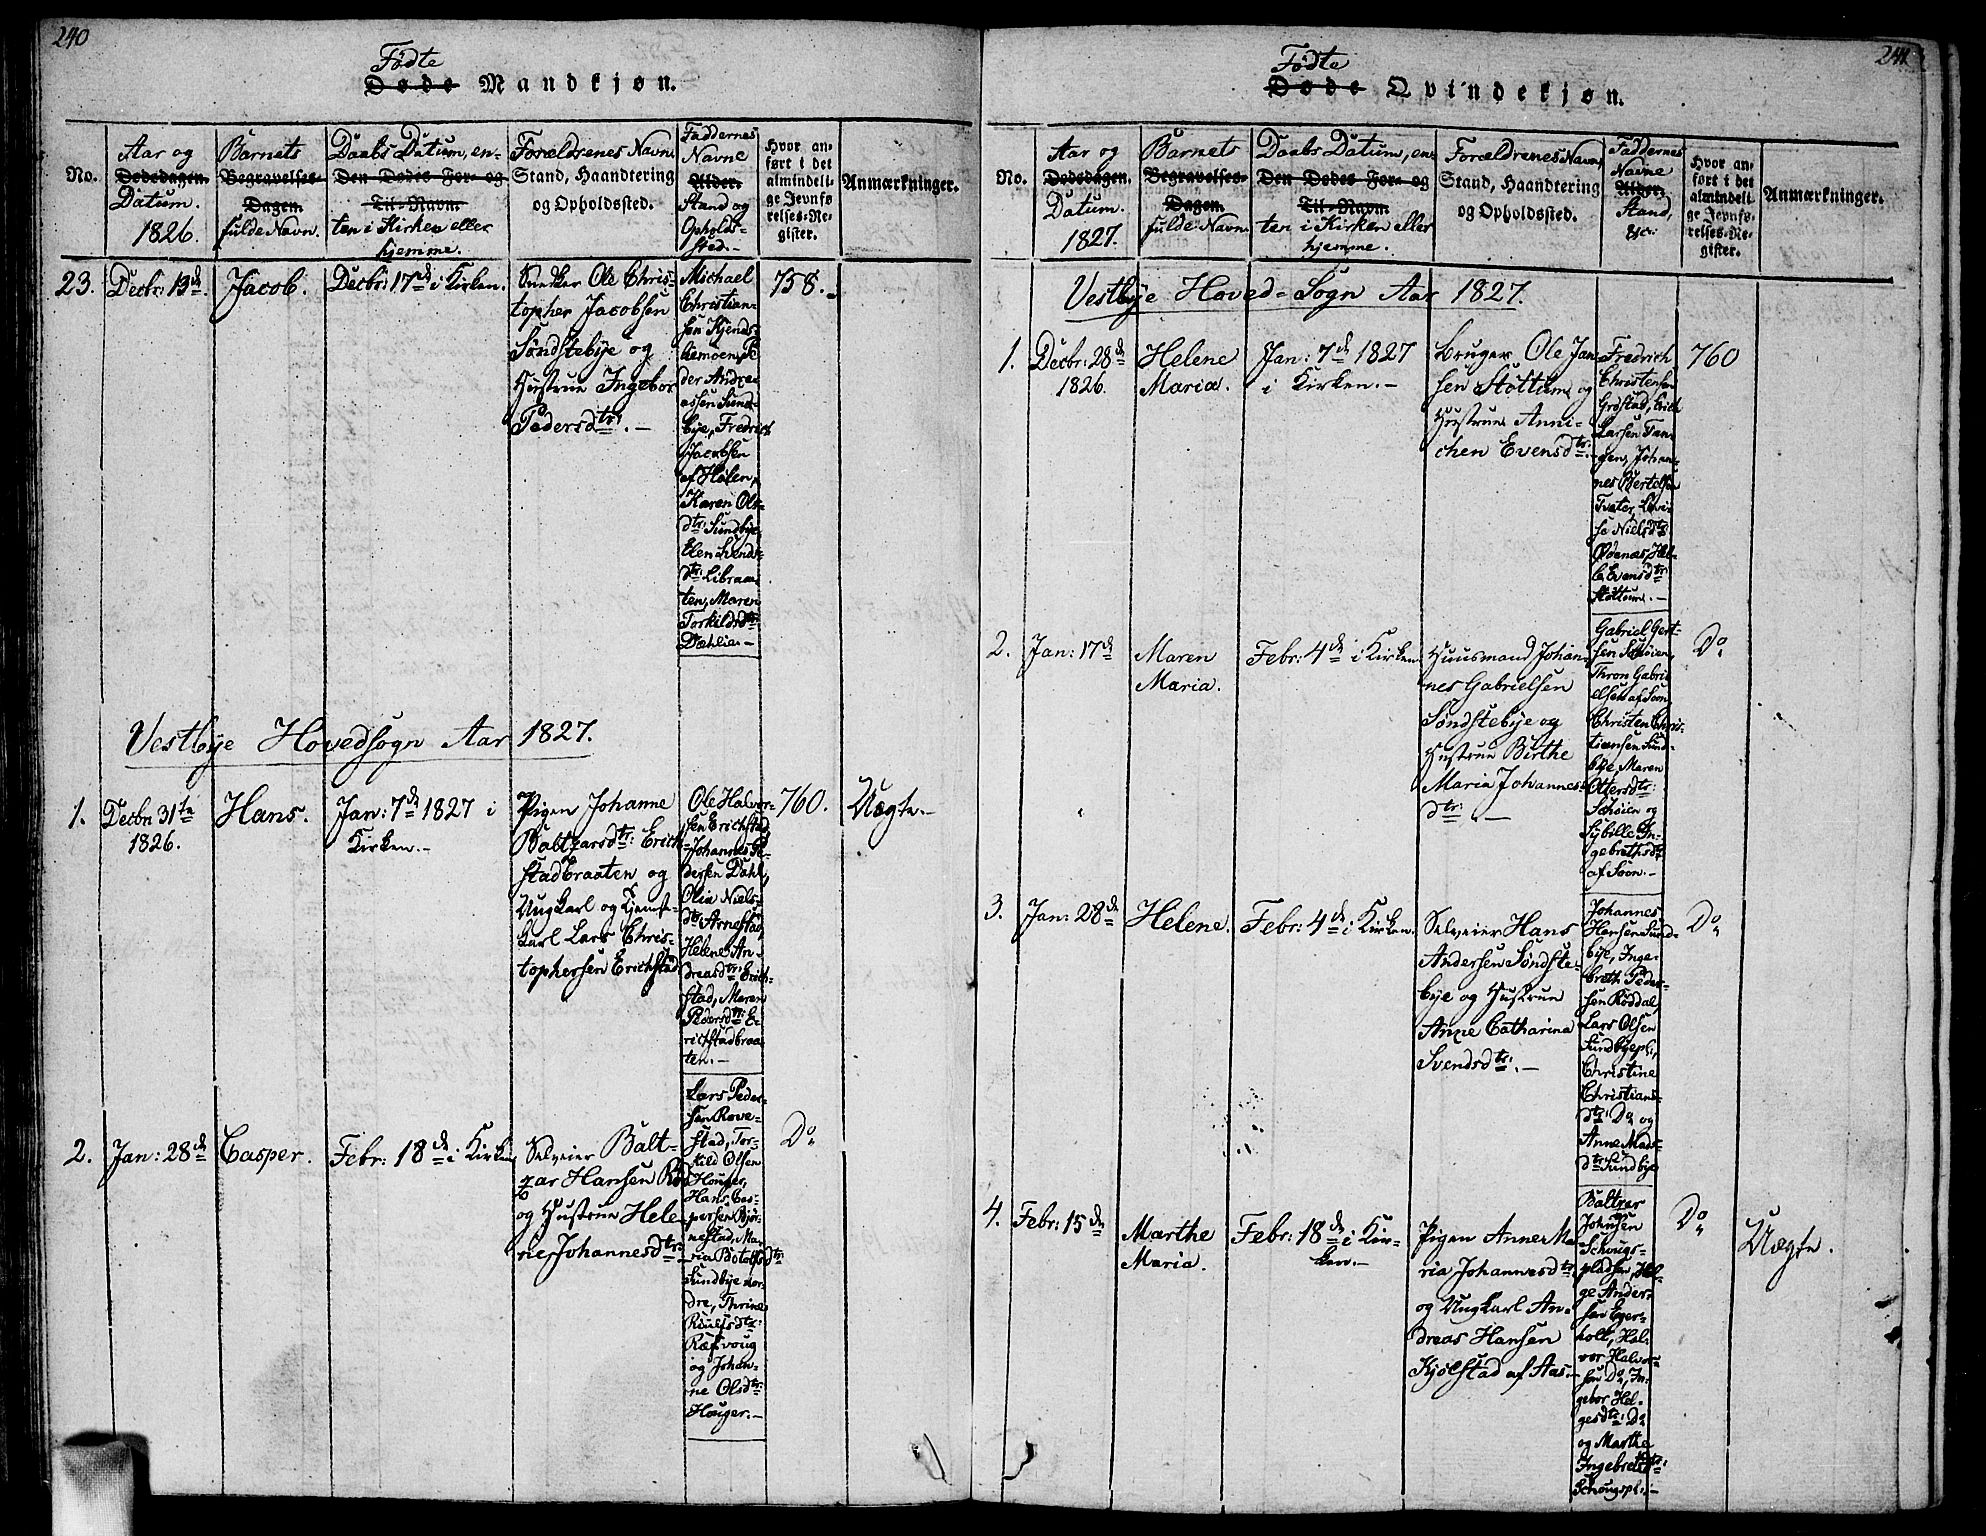 240
Fødte
Døde Mandkjøn.
No.
Aar og
Dødsdagen.
Datum.
1826.
Barnets
Begravelses-
Dagen.
fulde Navn.
Daabs Datum, en-
Den Dødes For- og
Til-Navn.
ten i Kirken eller
hjemme.
Forældrenes Navn
Stand, Haandtering
og Opholdssted.
Faddernes
Navne
Alder.
Stand og
Opholds-
sted.
Hvor an-
ført i det
almindeli-
ge Jevnfø-
relses-Re-
gister.
Anmærkninger.
23.
Decbr: 13de
Jacob.
Decbr: 17de i Kirken.
Snedker Ole Chris-
topher Jacobsen
Søndstebye og
Hustrue Ingebor
Pedersdtr:
Michael
Christian-
sen Kjends-
liemoen, Pe
der Andre-
assen Sund-
bye, Fredrich
Jacobsen
af Hølen,
Karen Ols-
dtr: Sundbye
Elen Svends-
dtr: Libraa-
ten, Maren
Torkildsdtr:
Dæhlie.
758.
Vestbye Hovedsogn Aar 1827.
1.
Decbr 31te
1826.
Hans.
Jan: 7de 1827 i
Kirken.
Pigen Johanne
Baltzarsdtr: Erich-
stadbraaten og
Ungkarl og Tjeneste-
karl Lars Chris-
tophersen Erichstad
Ole Halvor-
sen Erichstad,
Johannes Pe-
dersen Dahl,
Olia Niels-
dtr: Arnestad,
Helene An-
dreasdtr: Erich-
stad, Maren
Pedersdtr: E-
richstadbraa-
ten.
760.
Uægte.
2.
Jan: 28de
Casper.
Febr: 18de i Kirken
Selveier Balt-
zar Hansen Rød
og Hustrue Hele-
ne Johannesdtr:
Lars Peder-
sen Rave-
stad, Tor-
kild Olsen
Houger,
Hans Cas-
persen Bjør-
nestad, Ma-
ria Botolfsdtr:
Sundbye nor-
dre, Thrine
Roulfsdtr:
Ræfsvoug
og Johan-
ne Olsdtr:
Houger.
Do
241
Fødte
Døde Qvindekjøn.
No.
Aar og
Dødsdagen.
Datum.
1827.
Barnets
Begravelses-
Dagen.
fulde Navn.
Daabs Datum, en-
Den Dødes For- og
Til-Navn
ten i Kirken eller
hjemme.
Forældrenes Navn,
Stand, Haandtering
og Opholdssted.
Faddernes
Navne
Alder.
Stand,
&c:
Hvor an-
ført i det
almindeli-
ge Jevnfø-
relses-Re-
gister.
Anmærkninger.
Vestbye Hoved-Sogn Aar 1827.
1.
Decbr: 28de
1826.
Helene
Maria.
Jan: 7de 1827
i Kirken.
Bruger Ole Jan
sen Støttum og
Hustrue Anni-
chen Evensdtr:
Fredrich
Christensen
Grøstad, Erich
Larsen Tan-
gen, Johan-
nes Bertelsen
Tveter, Lovi-
se Nielsdtr:
Ødenæs, Hel-
le Evensdtr:
Støttum.
760
2.
Jan: 17de
Maren
Maria.
Febr: 4de i Kirken
Huusmand Johan-
nes Gabrielsen
Søndstebye og
Hustrue Birthe
Maria Johannes-
dtr:
Gabriel Gert-
sen Schøien,
Thron Gabri-
elsen af Soon
Christen Chris-
tiansen Sund-
bye, Maren
Ottersdtr:
Schøien og
Sybille In-
gebrethsdtr:
af Soon.
Do
3.
Jan: 28de
Helene.
Febr: 4de i Kirken.
Selveier Hans
Andersen Søndste-
bye og Hustrue
Anne Catharina
Svendsdtr:
Johannes
Hansen Sund-
bye, Inge-
breth Peder-
sen Røddal,
Lars Olsen
Sundbyepl:,
Christine
Christians-
dtr: Do og
Anne Mads-
dtr: Sundbye
Do
4.
Febr: 15de
Marthe
Maria.
Febr: 18de i Kir-
ken.
Pigen Anne Ma-
ria Johannesdtr:
og Ungkarl An-
dreas Hansen
Kjølstad af Aas.
Baltzer
Johnsen
Schougs-
pladsen, Hel-
ge Ander-
sen Eger-
holt, Hal-
vor Halvor-
sen Do, In-
gebor Hel-
gesdtr: Do
og Marthe
Ingebretsdtr:
Schougspl:
Do
Uægte.